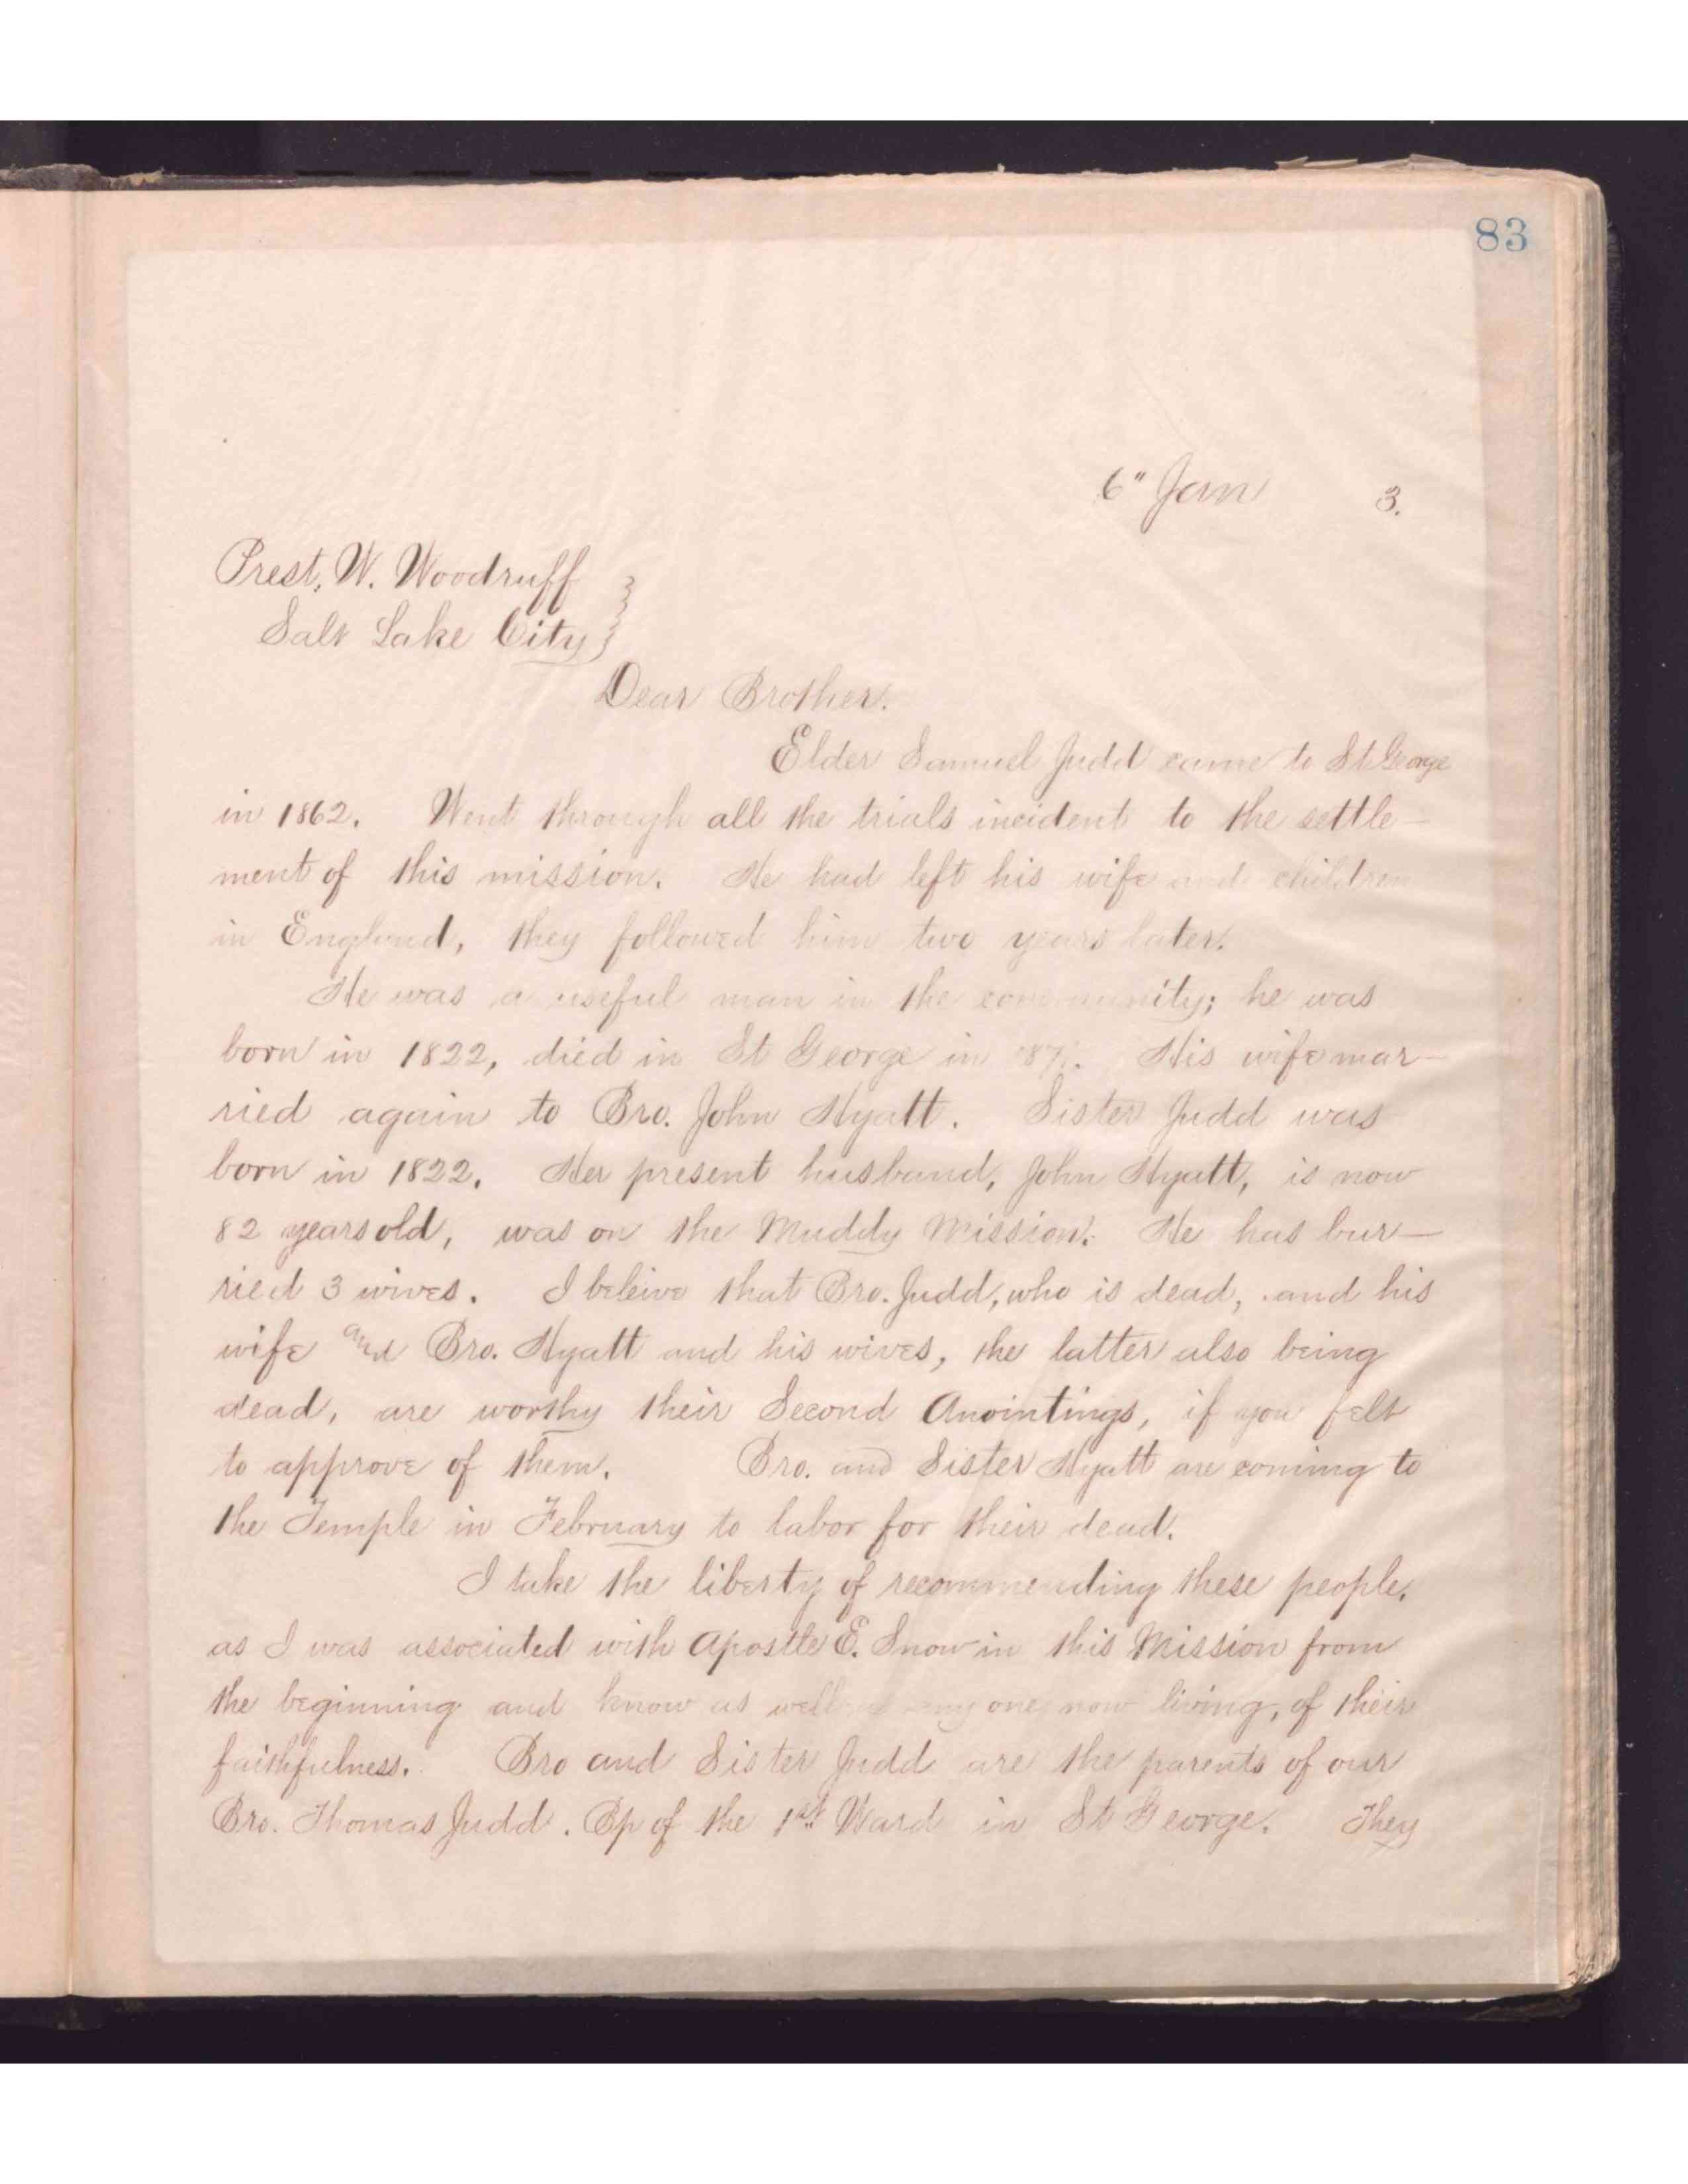 83
6" Jan 3.
Prest. W. Woodruff
Salt Lake City
Dear Brother.
Elder Samuel Judd came to St George
in 1862. Went through all the trials incident to the settle-
ment of this mission. He had left his wife and children
in England, they followed him two years later.
He was a useful man in the community; he was
born in 1822, died in St George in 187 . His wife mar-
ried again to Bro. John Hyatt. Sister Judd was
born in 1822. Her present husband, John Hyatt, is now
82 years old, was on the Muddy Mission. He has bur-
ried 3 wives. I beleive that Bro. Judd, who is dead, and his
wife and Bro. Hyatt and his wives, the latter also being
dead, are worthy their Second Anointings, if you felt
to approve of them. Bro. and Sister Hyatt are coming to
the Temple in February to labor for their dead.
I take the liberty of recommending these people.
as I was associated with Apostle E. Snow in this Mission from
the beginning and know as well as any one now living, of their
faithfulness. Bro and Sister Judd are the parents of our
Bro. Thomas Judd. Bp of the 1st Ward in St George. They